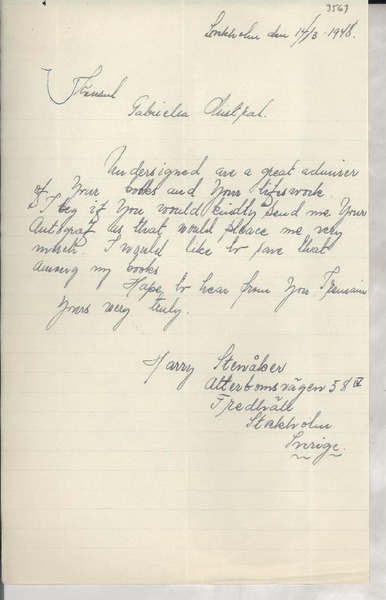 3563
Stockholm den 14/3-1948.
Konsul
Gabriela Mistral.
Undersigned are a great admirer
of Your books and Your lifswork.
I beg if You would kindly send me Your
Autograf as that would please me very
much. I would like to save that
among my books
Hope to hear from You I remain
Yours very truly.
Harry Stenåker
Atterbomsvägen 58 IV
Fredhäll
Stockholm
Sverige.